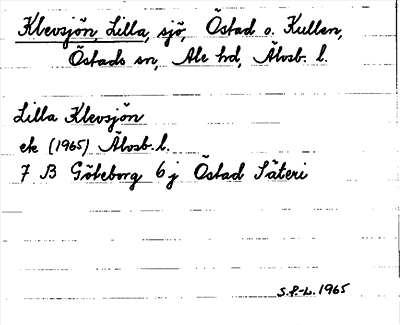 Klevsjön, Lilla, sjö, Östad o. Kullen,
Östads sn, Ale hd, Älvsb. l.
Lilla Klevsjön
ek (1965) Älvsb. l.
7 B Göteborg 6 j Östad Säteri
S.P.-L. 1965